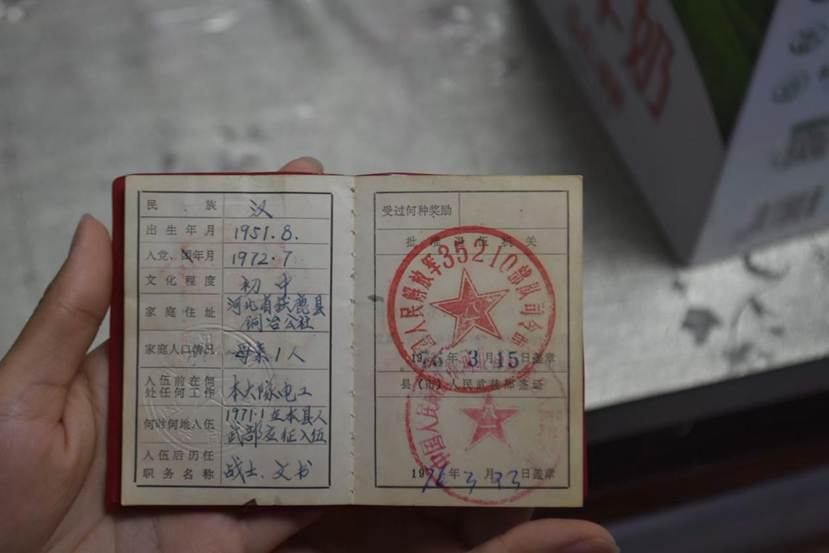 民 族 汉
出生年月 1951.8.
入党、团年月 1972.7
文化程度 初中
家庭住址 河北省获鹿县
铜冶公社
家庭人口情况 母亲1人
入伍前在何
处任何工作 本大队电工
何时何地入伍 1971.1在本县人
武部应征入伍
入伍后历任
职务名称 战士、文书
受过何种奖励
批准退伍机关
中国人民解放军35210部队司令部
年3月15日盖章
县(市)人民武装部签证
中国人民解放军
年3月23日盖章
奶